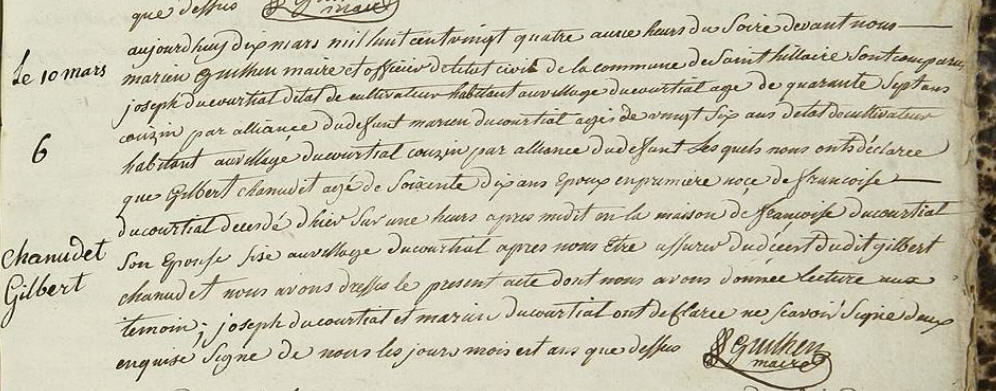 que dessus Guilhen
maire
aujourdhuy dix mars mil huit cent vingt quatre aux heurs du Soire devant nous
Le 10 mars
marien Guilhen maire et officier detetat civil de la commune de Saint hillaire Sont comparus
joseph ducourtial detat de cultivateur habitant au village ducourtial age de quarante Sept ans
6
couzin par alliance dudefunt marien ducourtial agés de vingt Six ans detat docultivateur
habitant au village ducourtial couzin par alliance dudefunt Les quels nous onts déclaree
que Gilbert chanudet agé de Soixente dix ans Epoux enpremiere noçe de francoise
ducourtial decedé d'hier Sur une heurs apres midit en la maison de françoise ducourtial
chanudet
Gilbert
Son Epouse Sise au village ducourtial apres nous Etre assurer dudécent dudit gilbert
chanudet nous avons dresse le present acte dont nous avons donnée Lecture aux
temoin; joseph ducourtial et marien ducourtial ont deClaree ne Scavoir Signé deux
enquise Signe de nous les jours mois est ans que dessus
Guilhen
maire